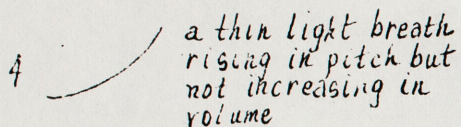 4
a thin light breath
rising in pitch but
not increasing in
volume